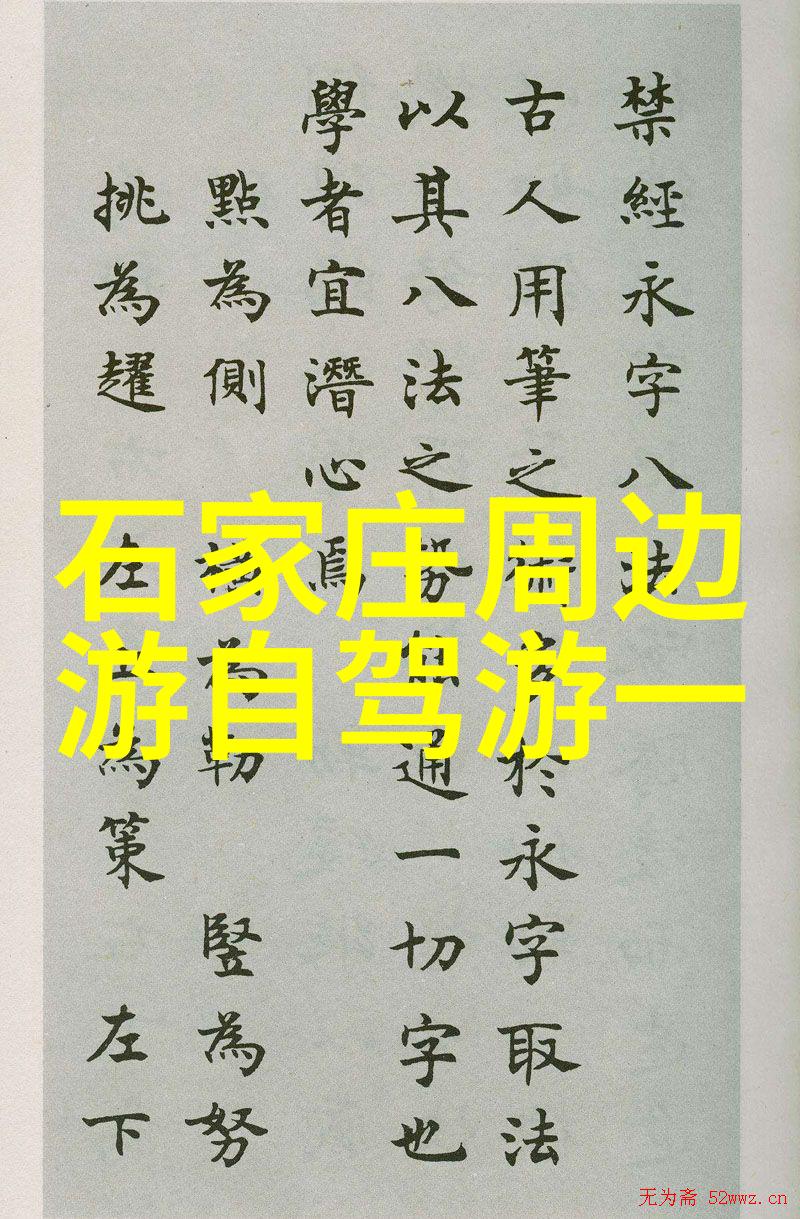 禁經永字八法
古人用筆之術於永字取法
以其八法之勢能通一切字也
學者宜潛心焉
點為側 橫為勒 豎為努
挑為趯 左為策 左下
石家庄周边
游自驾游一
无为斋 52wwz.cn